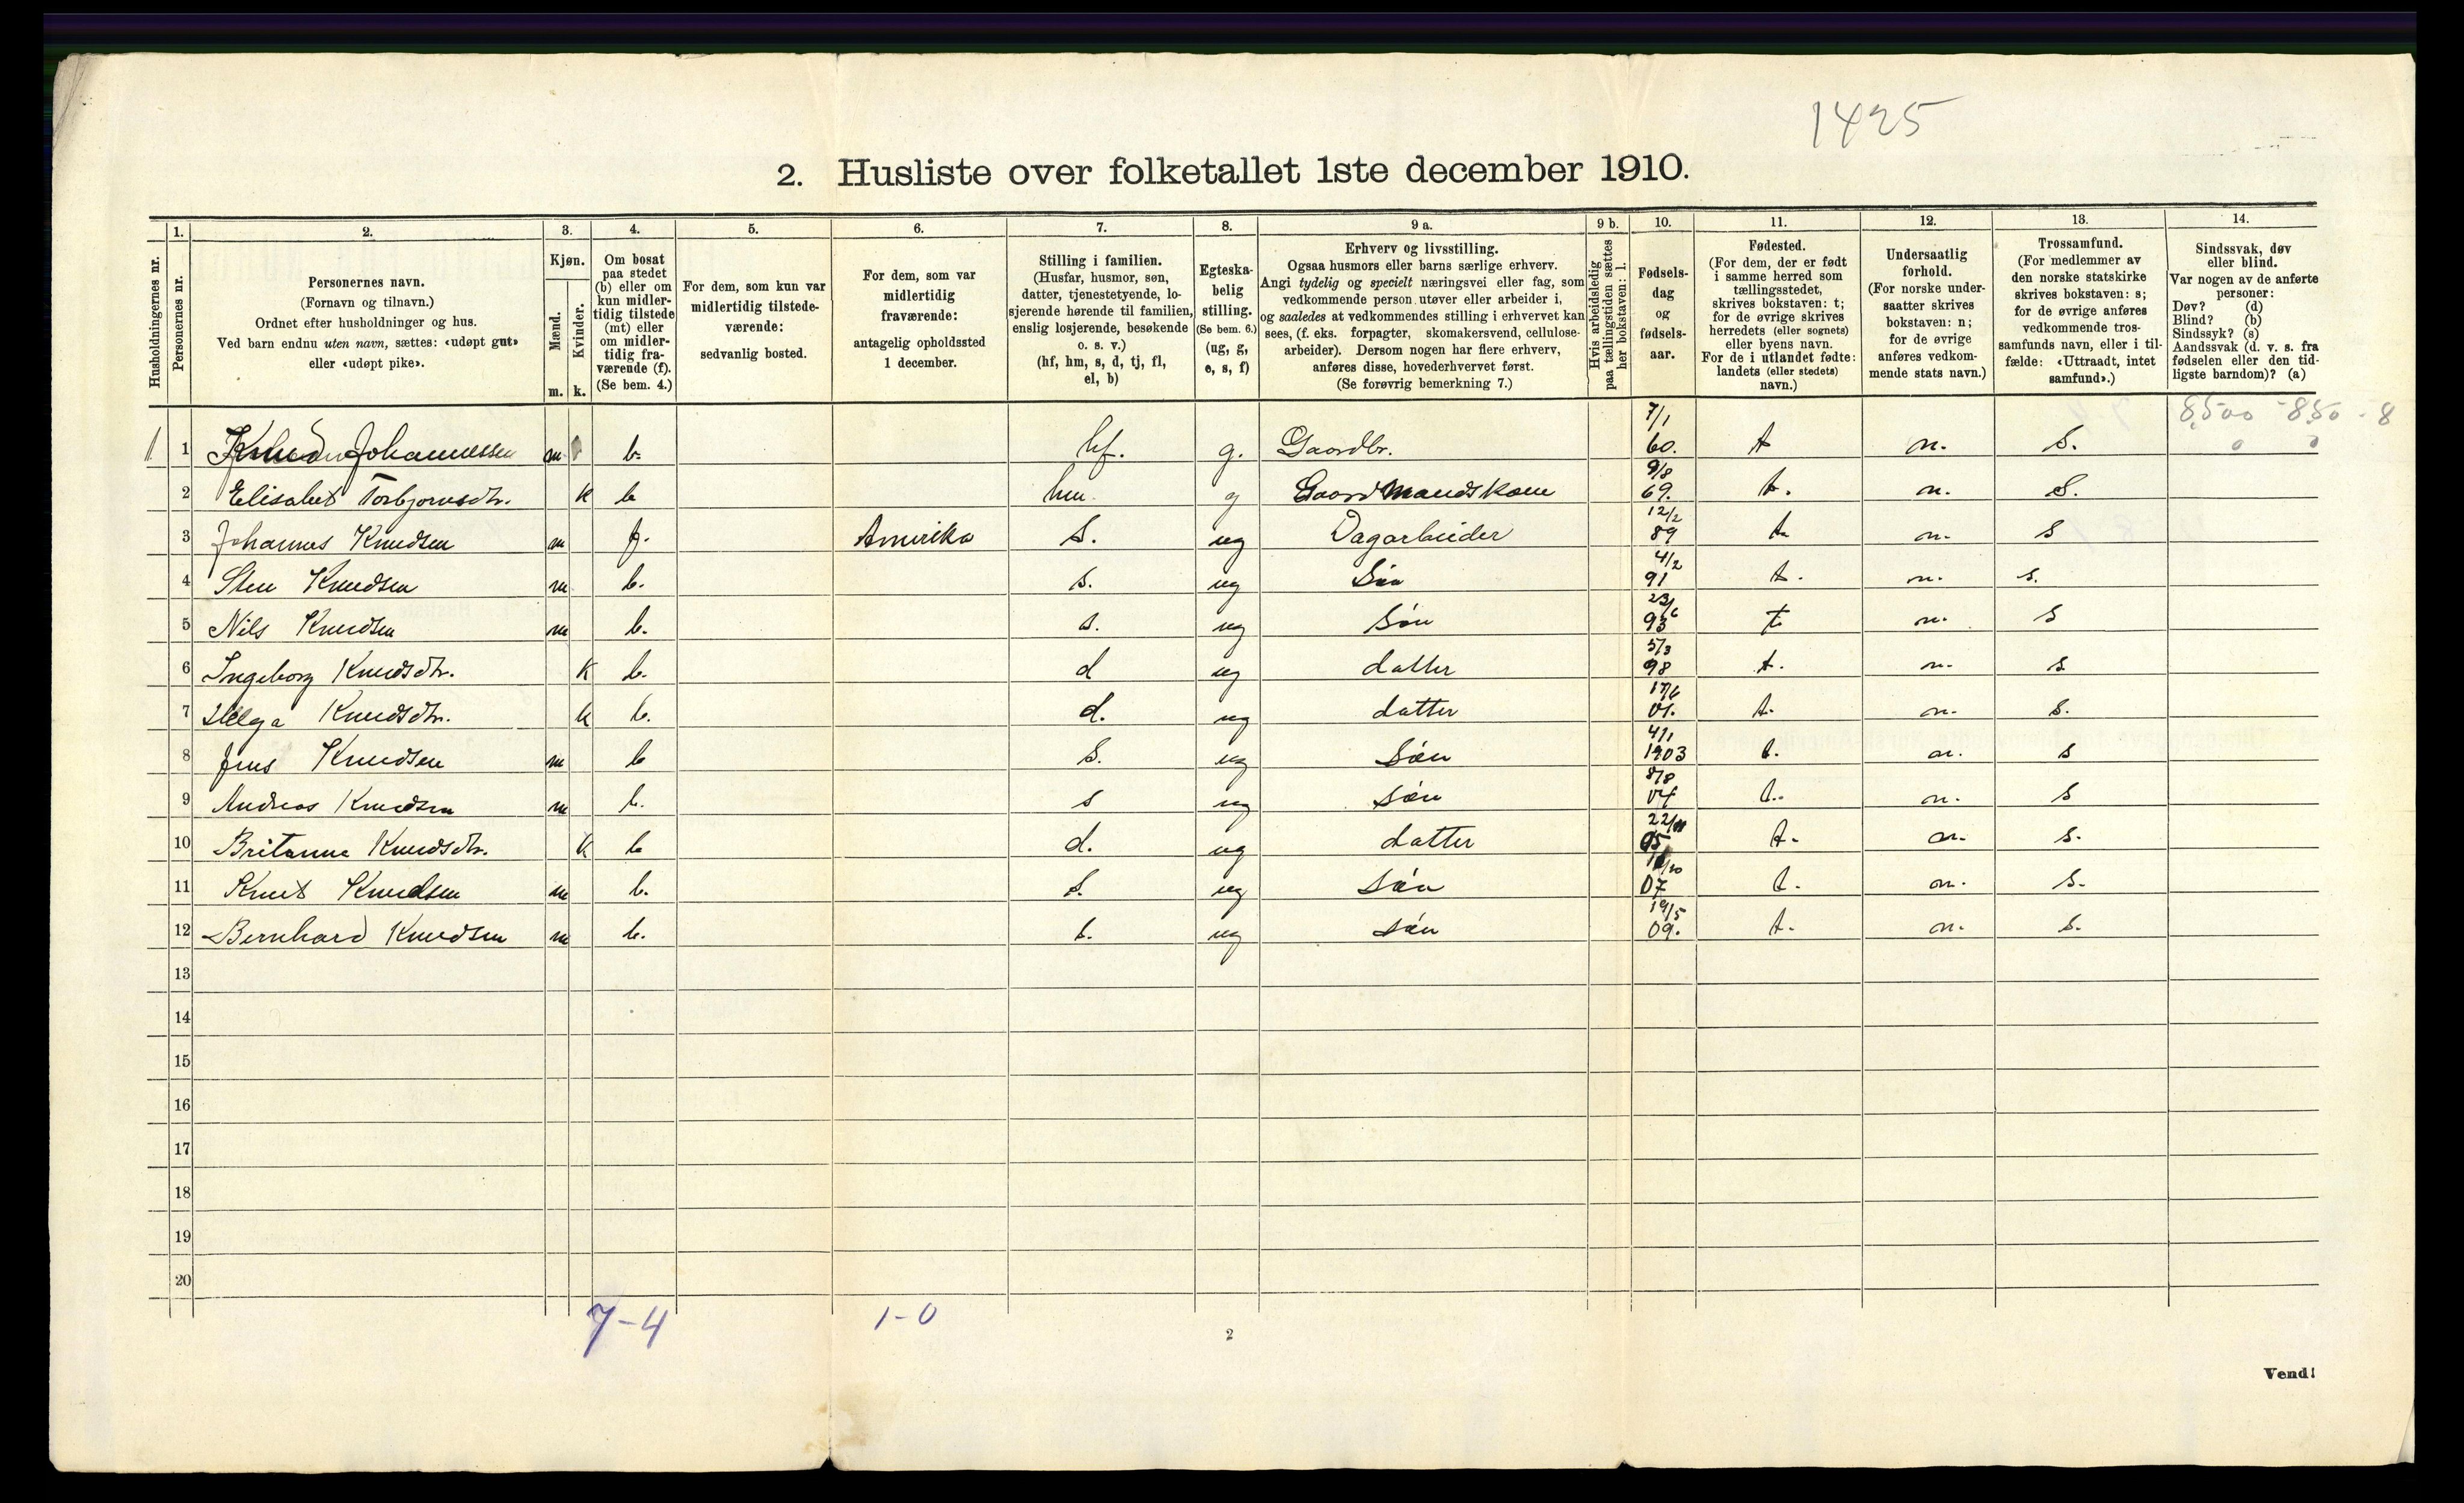 1425
2. Husliste over folketallet 1ste december 1910.
Husholdningernes nr.
1. Personernes nr.
2. Personernes navn.
(Fornavn og tilnavn.)
Ordnet efter husholdninger og hus.
Ved barn endnu uten navn, sættes: «udøpt gut»
eller «udøpt pike».
3. Kjøn.
Mænd. m.
Kvinder. k.
4. Om bosat
paa stedet
(b) eller om
kun midler-
tidig tilstede
(mt) eller
om midler-
tidig fra-
værende (f).
(Se bem. 4.)
5. For dem, som kun var
midlertidig tilstede-
værende:
sedvanlig bosted.
6. For dem, som var
midlertidig
fraværende:
antagelig opholdssted
1 december.
7. Stilling i familien.
(Husfar, husmor, søn,
datter, tjenestetyende, lo-
sjerende hørende til familien,
enslig losjerende, besøkende
o. s. v.)
(hf, hm, s, d, tj, fl,
el, b)
8. Egteska-
belig
stilling.
(Se bem. 6.)
(ug, g,
e, s, f)
9 a. Erhverv og livsstilling.
Ogsaa husmors eller barns særlige erhverv.
Angi tydelig og specielt næringsvei eller fag, som
vedkommende person utøver eller arbeider i,
og saaledes at vedkommendes stilling i erhvervet kan
sees, (f. eks. forpagter, skomakersvend, cellulose-
arbeider). Dersom nogen har flere erhverv,
anføres disse, hovederhvervet først.
(Se forøvrig bemerkning 7.)
9 b. Hvis arbeidsledig
paa tællingstiden sættes
her bokstaven: l.
10. Fødsels-
dag
og
fødsels-
aar.
11. Fødested.
(For dem, der er født
i samme herred som
tællingsstedet,
skrives bokstaven: t;
for de øvrige skrives
herredets (eller sognets)
eller byens navn.
For de i utlandet fødte:
landets (eller stedets)
navn.)
12. Undersaatlig
forhold.
(For norske under-
saatter skrives
bokstaven: n;
for de øvrige
anføres vedkom-
mende stats navn.)
13. Trossamfund.
(For medlemmer av
den norske statskirke
skrives bokstaven: s;
for de øvrige anføres
vedkommende tros-
samfunds navn, eller i til-
fælde: «Uttraadt, intet
samfund».)
14. Sindssvak, døv
eller blind.
Var nogen av de anførte
personer:
Døv? (d)
Blind? (b)
Sindssyk? (s)
Aandssvak (d. v. s. fra
fødselen eller den tid-
ligste barndom)? (a)
1 1 Knud Johannessen m b. hf. g. Gaardbr. 7/1 60. t n. S.
2 Elisabet Torbjørnsdtr. k b hm. g Gaardmandskone 9/8 69. t. n. S.
3 Johannes Knudsen m f. Amerika S. ug Dagarbeider 12/2 89 t. n. S
4 Sten Knudsen m b. s. ug Søn 4/2 91 t. n. s.
5 Nils Knudsen m b. s. ug Søn 23/6 93 t. n. s
6 Ingeborg Knudsdtr. k b. d ug datter 5/3 98 t. n. s
7 Helga Knudsdtr. k b. d. ug datter 17/6 01. t. n. s.
8 Jens Knudsen m b s. ug Søn 4/1 1903 t. n. s
9 Andreas Knudsen m b. s ug Søn 8/8 04 t. n. s
10 Britanna Knudsdtr. k b d. ug datter 22/11 05 t. n. s.
11 Knut Knudsen m b. s. ug Søn /10 07 t. n. s.
12 Bernhard Knudsen m b. s. ug søn 19/5 09. t. n. s.
13
14
15
16
17
18
19
20
7-4 1-0
2
Vend!